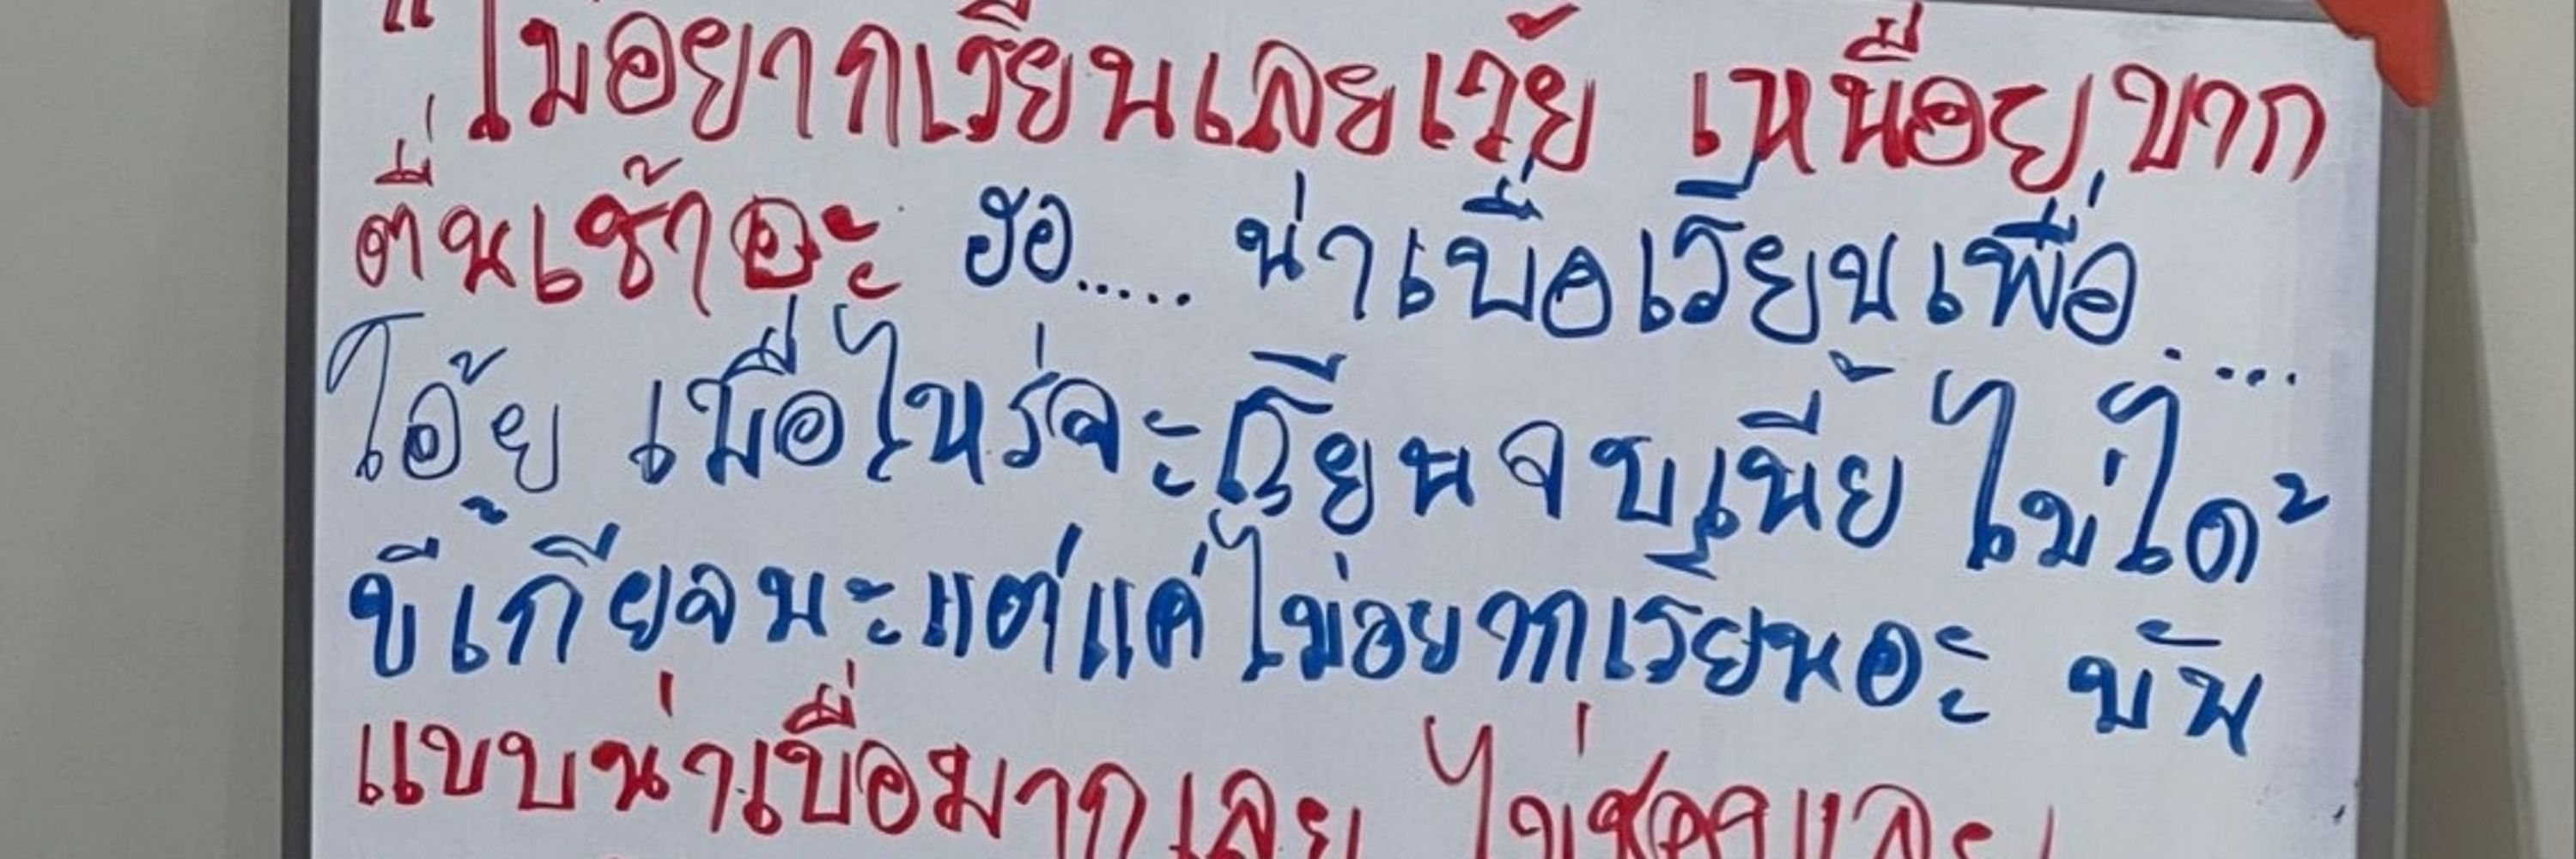 "ไม่อยากเรียนเลยเว้ย เหนื่อยมาก
ตื่นเช้าอะ ฮือ..... น่าเบื่อเรียนเพื่อ....
โอ้ย เมื่อไหร่จะเรียนจบเนี้ย ไม่ได้
ขี้เกียจนะแต่แค่ไม่อยากเรียนอะ มัน
แบบน่าเบื่อมากเลย ไม่ชอบและ